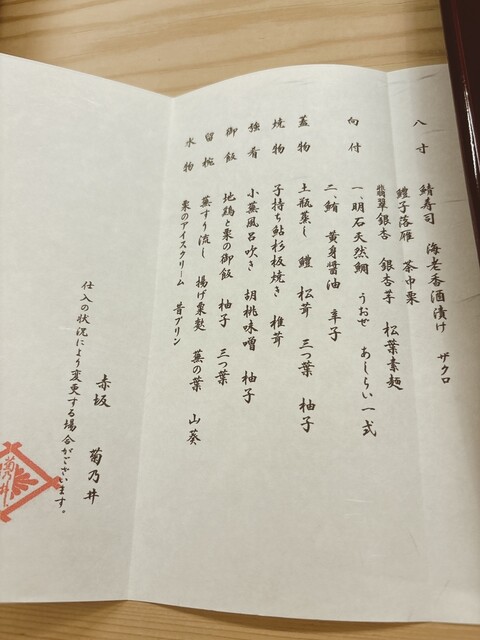 八寸 鯖寿司 海老香酒漬け ザクロ
鱧子落雁 茶巾栗
翡翠銀杏 銀杏芋 松葉素麺
向付 一、明石天然鯛 うおぜ あしらい一式
二、鮪 黄身醤油 辛子
蓋物 土瓶蒸し 鱧 松茸 三つ葉 柚子
焼物 子持ち鮎杉板焼き 椎茸
強肴 小蕪風呂吹き 胡桃味噌 柚子
御飯 地鶏と栗の御飯 柚子 三つ葉
留椀 蕪すり流し 揚げ粟麩 蕪の葉 山葵
水物 栗のアイスクリーム 昔プリン
赤坂 菊乃井
仕入の状況により変更する場合がございます。
菊乃井